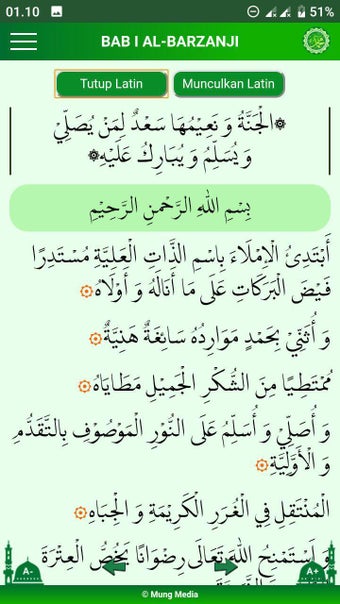 01.10
51%
BAB I AL-BARZANJI
Tutup Latin
Munculkan Latin
۞الْجَنَّةُ وَ نَعِيْمُهَا سَعْدٌ لِمَنْ يُصَلِّيْ
وَ يُسَلِّمُ وَ يُبَارِكُ عَلَيْهِ۞
بِسْمِ اللهِ الرَّحْمنِ الرَّحِيْمِ
أَبْتَدِئُ الْإِمْلَاءَ بِاسْمِ الذَّاتِ الْعَلِيَّةِ مُسْتَدِرًا
فَيْضَ الْبَرَكَاتِ عَلَى مَا أَنَالَهُ وَ أَوْلَاهُ۞
وَ أُثَنِّيْ بِحَمْدٍ مَوَارِدُهُ سَائِغَةٌ هَنِيَّةٌ۞
مُمْتَطِيًا مِنَ الشُّكْرِ الْجَمِيْلِ مَطَايَاهُ۞
وَ أُصَلِّيْ وَ أُسَلِّمُ عَلَى النُّوْرِ الْمَوْصُوْفِ بِالتَّقَدُّمِ
وَ الْأَوَّلِيَّةِ۞
الْمُنْتَقِلِ فِي الْغُرَرِ الْكَرِيْمَةِ وَ الْجِبَاهِ۞
وَ أَسْتَمْنِحُ اللهَ تَعَالَى رِضْوَانًا يَخُصُّ الْعِتْرَةَ
A-
A+
© Mung Media